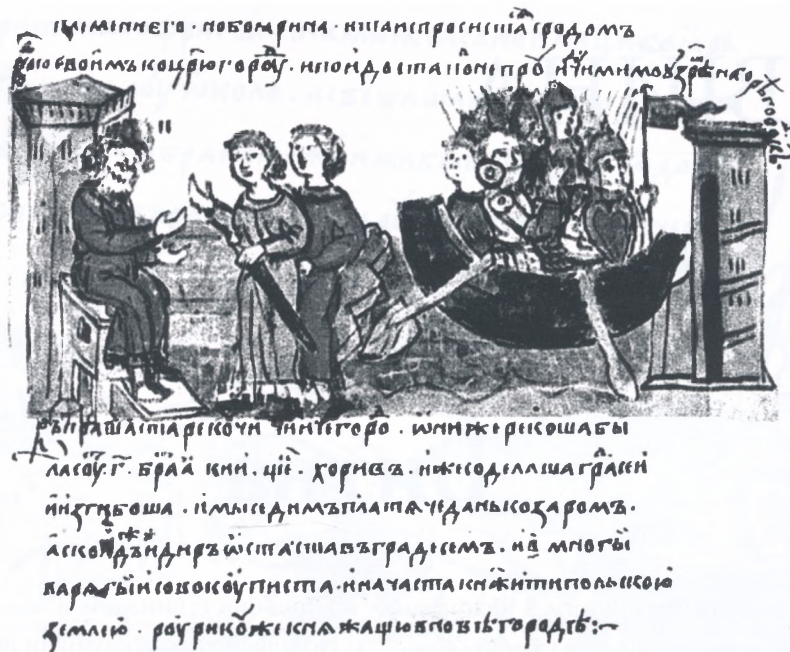 племени его · но боярина · и та испросистаⷭ҇ с родомъ
своимъ ко црю҃городꙋ · и поидоста по непрꙋ идꙋчи мимо ꙋзрѣста на горѣ городокъ
въпрашаста рекочи чии се городъ · ѡни же рекоша бы
ла сꙋⷮ · г҃ · браⷮӕ кии · щеⷦ · хоривъ · иже соделаша граⷣ сеи
и изгибоша · и мы седимъ платѧче дань козаромъ ·
асколдъ и диръ ѡстаста въ градѣ сем · и многы
варѧгы совокꙋписта · и начаста кнѧжити польскою
землею · рюрикꙋ же кнѧжащю в новѣгородѣ :~